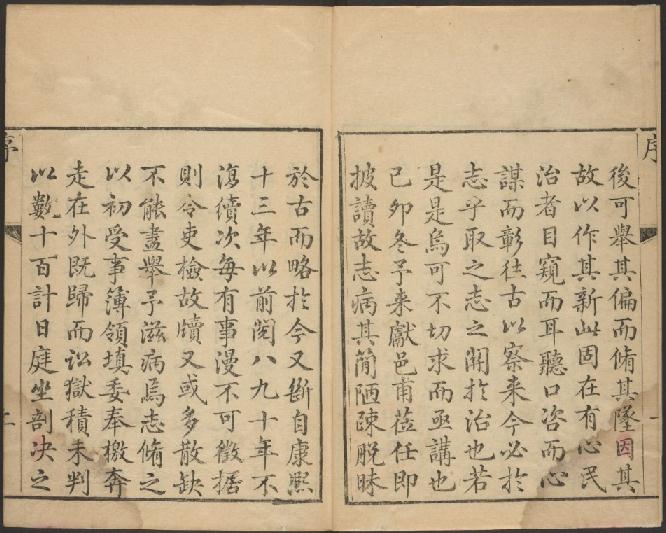 序
後可舉其偏而脩其墜因其
故以作其新此固在有心民
治者目窺而耳聽口咨而心
謀而彰往古以察來今必於
志乎取之志之關於治也若
是是烏可不切求而亟講也
己卯冬予来獻邑甫莅任即
披讀故志病其蕳陋踈脱昧
於古而略於今又斷自康熙
十三年以前闕八九十年不
復續次每有事漫不可徵据
則令吏檢故牘又或多散缺
不能盡舉予滋病焉志脩之
以初受事簿領填委奉檄奔
走在外既歸而訟獄積未判
以數十百計日庭坐剖决之
序
二